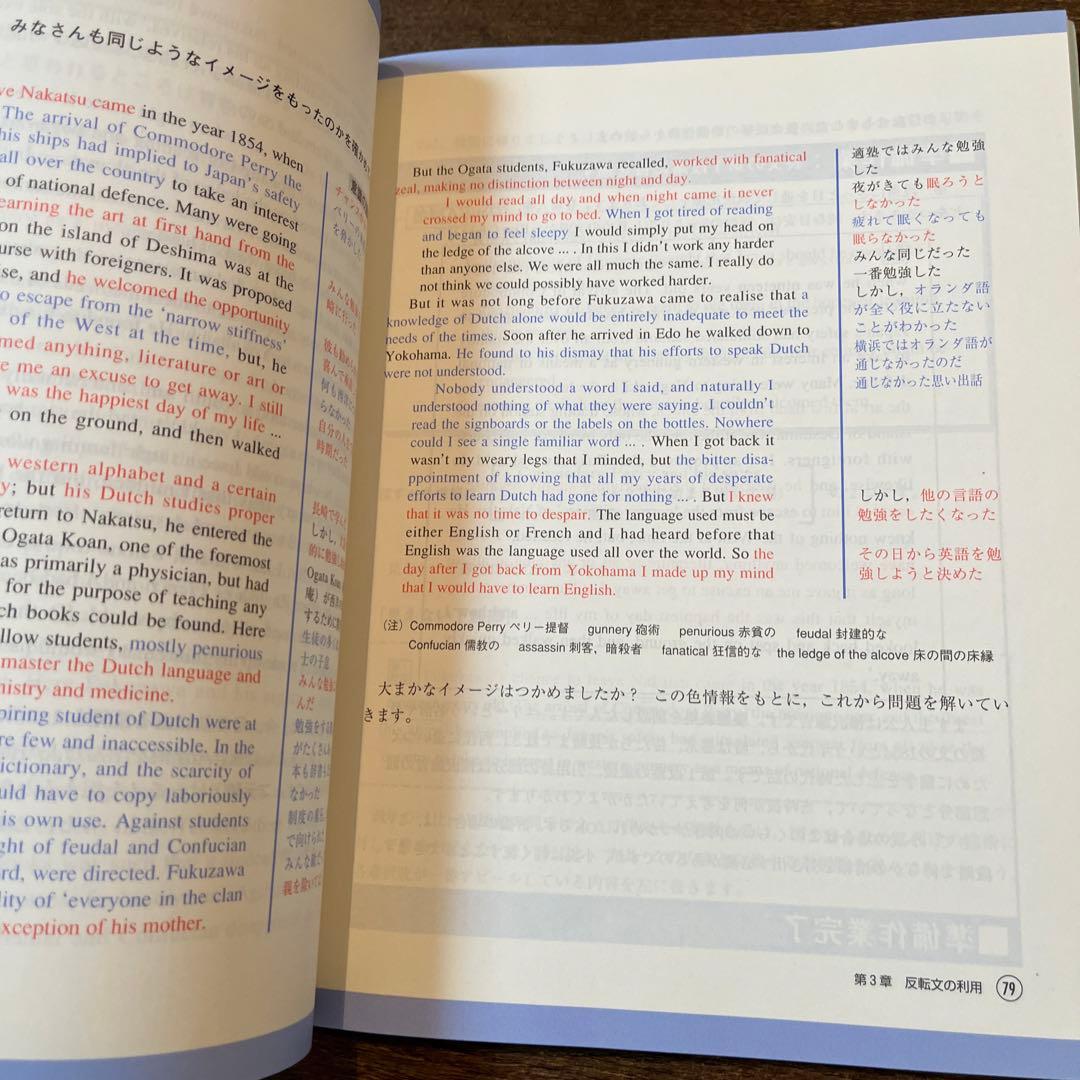 みなさんも同じようなイメージをもったのかを確か
ve Nakatsu came in the year 1854, when
The arrival of Commodore Perry the
his ships had implied to Japan's safety
all over the country to take an interest
of national defence. Many were going
earning the art at first hand from the
on the island of Deshima was at the
urse with foreigners. It was proposed
se, and he welcomed the opportunity
o escape from the 'narrow stiffness'
of the West at the time, but, he
med anything, literature or art or
re me an excuse to get away. I still
was the happiest day of my life ...
on the ground, and then walked
western alphabet and a certain
y; but his Dutch studies proper
return to Nakatsu, he entered the
Ogata Koan, one of the foremost
as primarily a physician, but had
for the purpose of teaching any
ch books could be found. Here
llow students, mostly penurious
master the Dutch language and
nistry and medicine.
piring student of Dutch were at
re few and inaccessible. In the
ictionary, and the scarcity of
uld have to copy laboriously
is own use. Against students
ght of feudal and Confucian
rd, were directed. Fukuzawa
lity of 'everyone in the clan
xception of his mother.
長崎で学ん
しかし,
的に勉強し
Ogata Ko
庵)が
するために
生徒の多く
士の子息
みんな勉強
んだ
勉強をする
がたくさん
本も辞書も
なかった
制度の
で向けられ
みんな敵だ
親を除いて
But the Ogata students, Fukuzawa recalled, worked with fanatical
zeal, making no distinction between night and day.
I would read all day and when night came it never
crossed my mind to go to bed. When I got tired of reading
and began to feel sleepy I would simply put my head on
the ledge of the alcove .... In this I didn't work any harder
than anyone else. We were all much the same. I really do
not think we could possibly have worked harder.
But it was not long before Fukuzawa came to realise that a
knowledge of Dutch alone would be entirely inadequate to meet the
needs of the times. Soon after he arrived in Edo he walked down to
Yokohama. He found to his dismay that his efforts to speak Dutch
were not understood.
Nobody understood a word I said, and naturally I
understood nothing of what they were saying. I couldn't
read the signboards or the labels on the bottles. Nowhere
could I see a single familiar word .... When I got back it
wasn't my weary legs that I minded, but the bitter disa-
ppointment of knowing that all my years of desperate
efforts to learn Dutch had gone for nothing .... But I knew
that it was no time to despair. The language used must be
either English or French and I had heard before that
English was the language used all over the world. So the
day after I got back from Yokohama I made up my mind
that I would have to learn English.
適塾ではみんな勉強
した
夜がきても眠ろうと
しなかった
疲れて眠くなっても
眠らなかった
みんな同じだった
一番勉強した
しかし,オランダ語
が全く役に立たない
ことがわかった
横浜ではオランダ語が
通じなかったのだ
通じなかった思い出話
しかし,他の言語の
勉強をしたくなった
その日から英語を勉
強しようと決めた
(注) Commodore Perry ペリー提督 gunnery 砲術 penurious 赤貧の feudal 封建的な
Confucian 儒教の assassin 刺客,暗殺者 fanatical 狂信的な the ledge of the alcove 床の間の床縁
大まかなイメージはつかめましたか? この色情報をもとに,これから問題を解いてい
きます。
第3章 反転文の利用 79